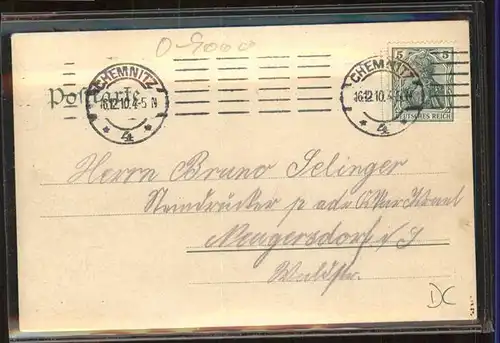 O-9000
5 5
DEUTSCHES REICH
CHEMNITZ
16.12.10. 4-5 N
* 4 *
CHEMNITZ
16.12.10. 4-5
* 4 *
Postkarte
Herrn Bruno Selinger
Steindrucker p. adr.
Neugersdorf i/S
Waldstr.
DC